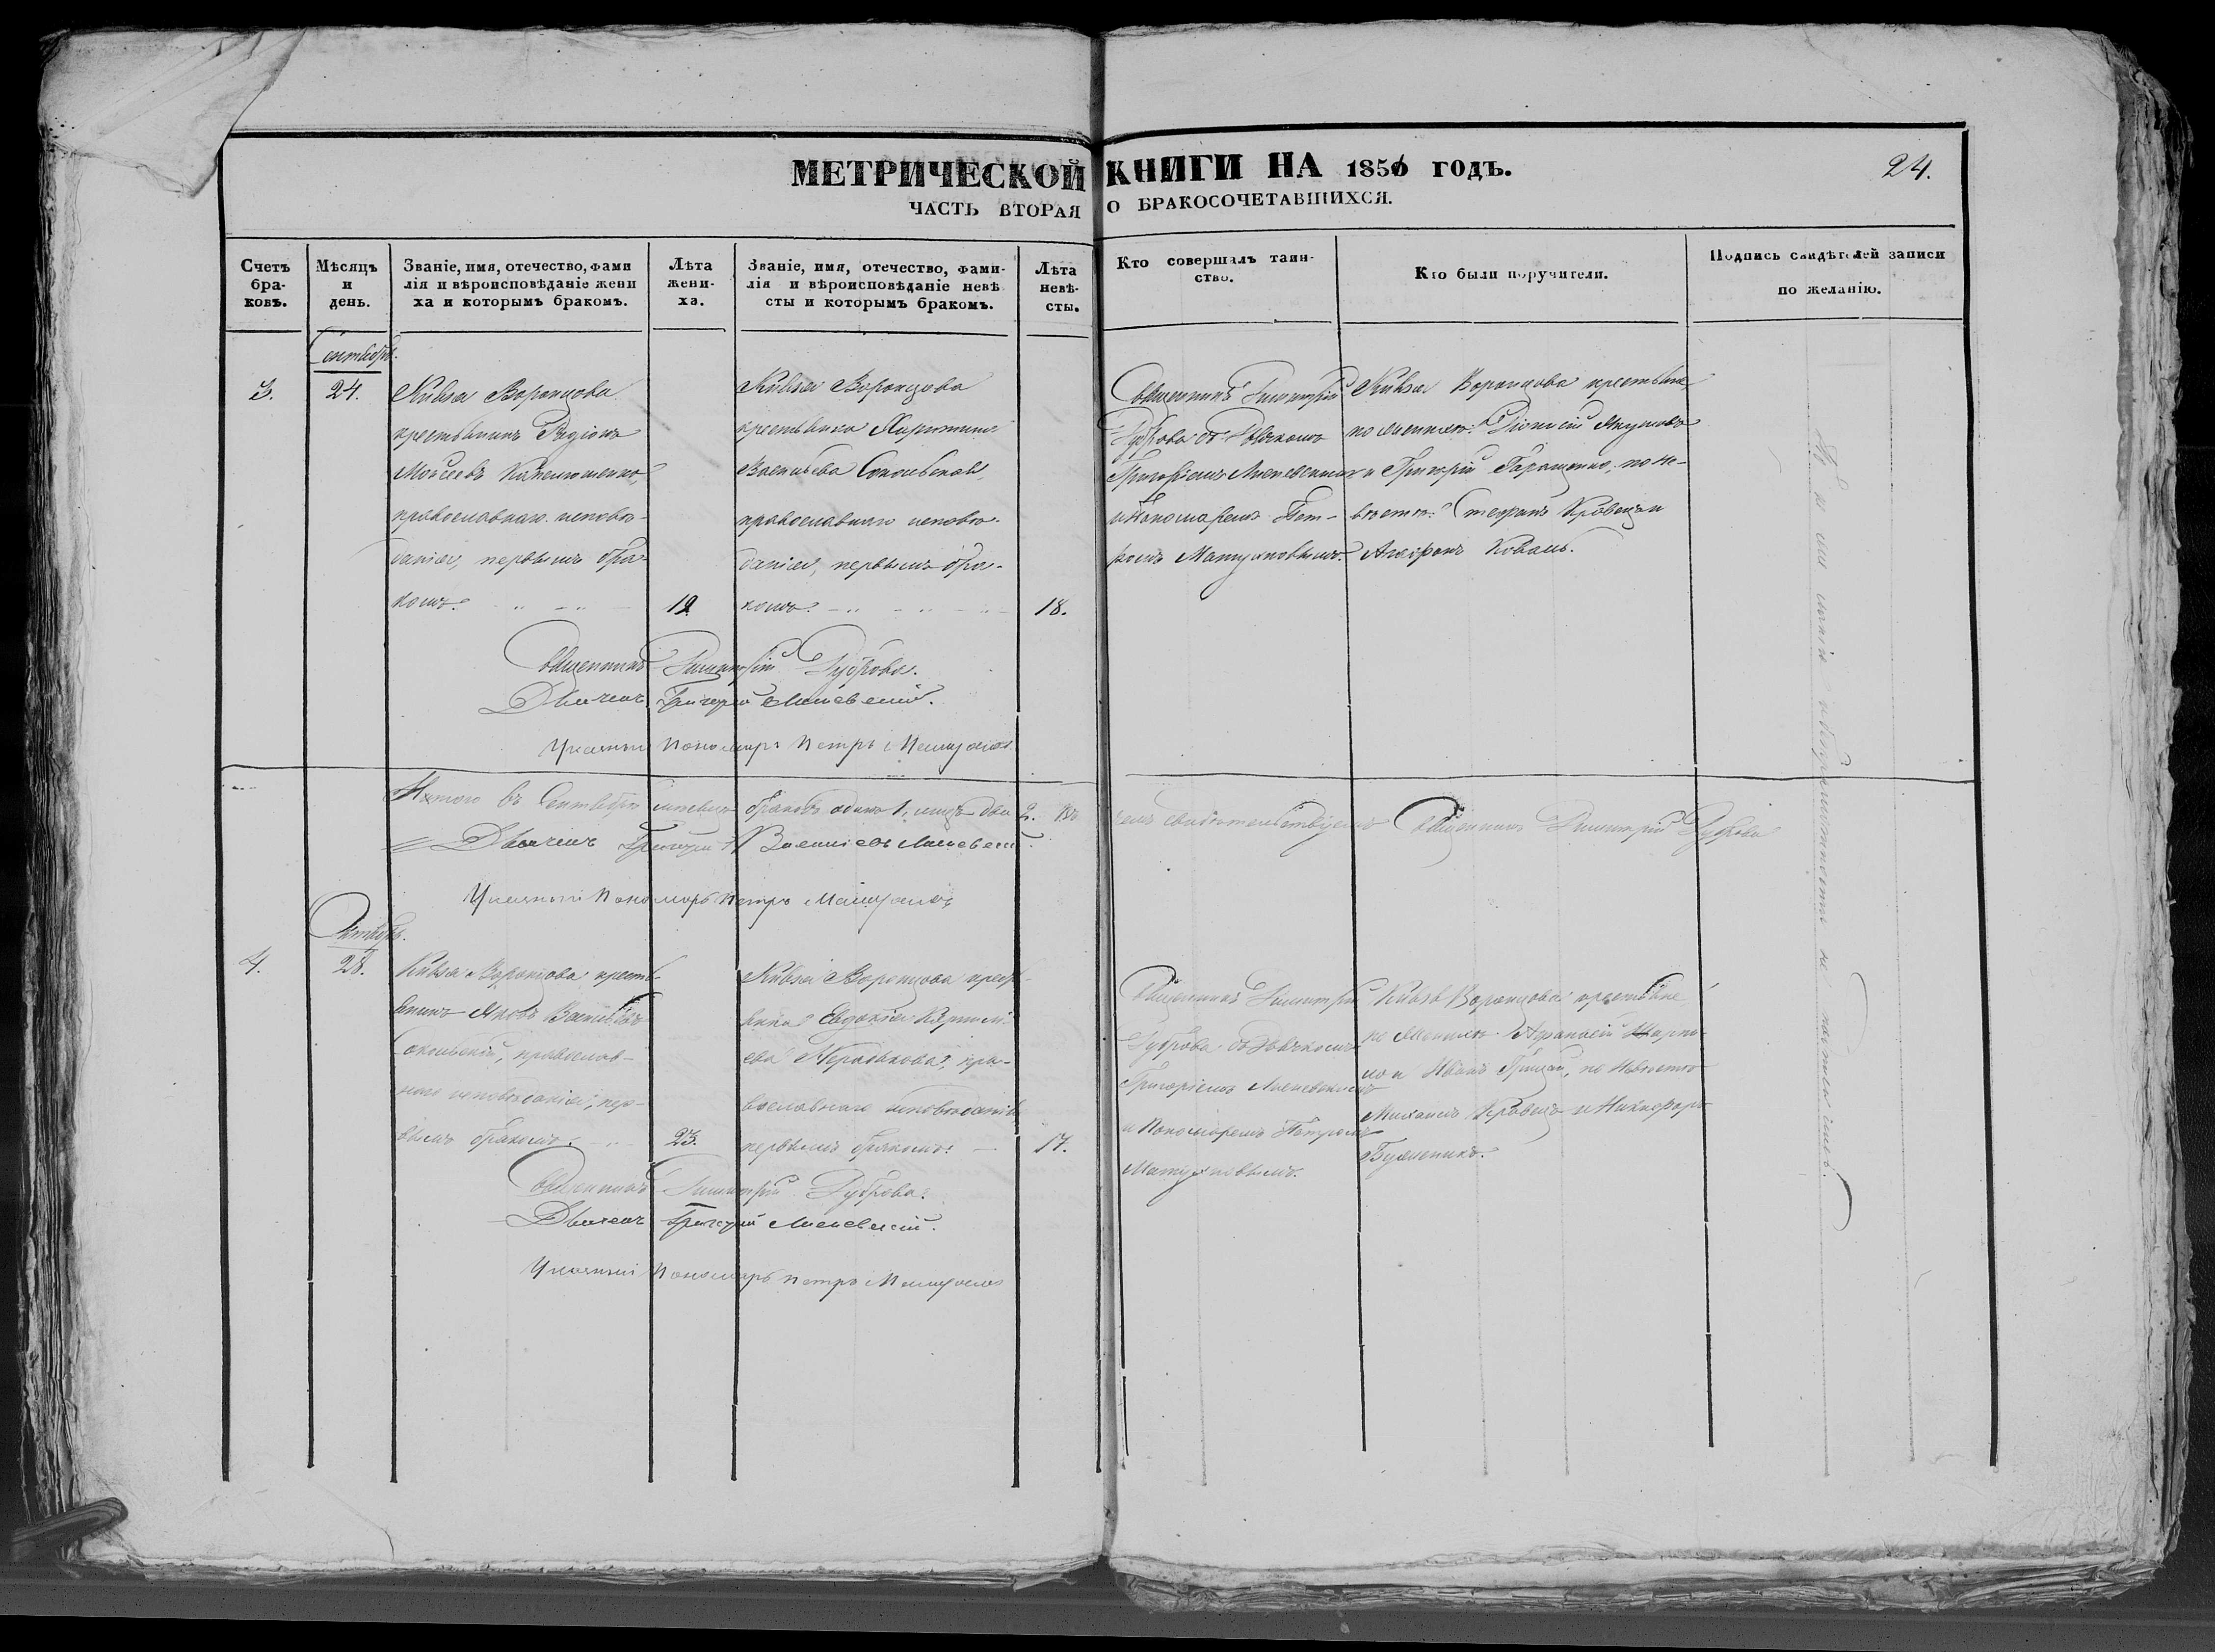 МЕТРИЧЕСКОЙ КНИГИ НА 1856 ГОДЪ.
24.
ЧАСТЬ ВТОРАЯ О БРАКОСОЧЕТАВШИХСЯ.
Счетъ бра-ковъ.
Мѣсяцъ и день.
Званіе, имя, отечество, фами
лія и вѣроисповѣданіе жени
ха и которымъ бракомъ.
Лѣта жени-ха.
Званіе, имя, отечество, фами-
лія и вѣроисповѣданіе невѣ
сты и которымъ бракомъ.
Лѣта невѣ-сты.
Кто совершалъ таин-
ство.
Кто были поручители.
Подпись свидѣтелей записи
по желанію.
Сентябрь.
3.
24.
Князя Воронцова
крестьянинъ Родіонъ
Моисеевъ
православнаго исповѣ-
данія, первымъ бра-
комъ.
19.
Князя Воронцова
крестьянка
Васильева Сокольская,
православнаго исповѣ-
данія, первымъ бра-
комъ.
18.
Священникъ Димитрій
Дуброва съ Дьячкомъ
Григоріемъ Лисневскимъ
и Пономаремъ Пет-
ромъ
Князя Воронцова крестьяне
по женихѣ: Діонисій Якушовъ
и Григорій Гаращенко, по не-
вѣстѣ: Стефанъ Кравецъ и
Коваль.
Священникъ Димитрій Дуброва.
Дьячекъ Григорій Лисневскій.
Указный Пономарь Петръ
Итого въ Сентябрѣ мѣсяцѣ браковъ одинъ 1, лицъ два 2. Въ чемъ свидѣтельствуемъ Священникъ Димитрій Дуброва
Дьячекъ Григорій Лисневскій.
Указный Пономарь Петръ
Октябрь.
4.
28.
Князя Воронцова кресть-
янинъ Яковъ Васильевъ
Сокольскій, православ-
наго исповѣданія, пер-
вымъ бракомъ.
23.
Князя Воронцова крес-
янка Евдокія
ева пра-
вославнаго исповѣданія
первымъ бракомъ.
17.
Священникъ Димитрій
Дуброва съ Дьячкомъ
Григоріемъ Лисневскимъ
и Пономаремъ Петромъ
Князя Воронцова крестьяне
по женихѣ: Афанасій
и Иванъ Грицай, по невѣстѣ
Михаилъ Кравецъ и Никифоръ
Священникъ Димитрій Дуброва.
Дьячекъ Григорій Лисневскій.
Указный Пономарь Петръ